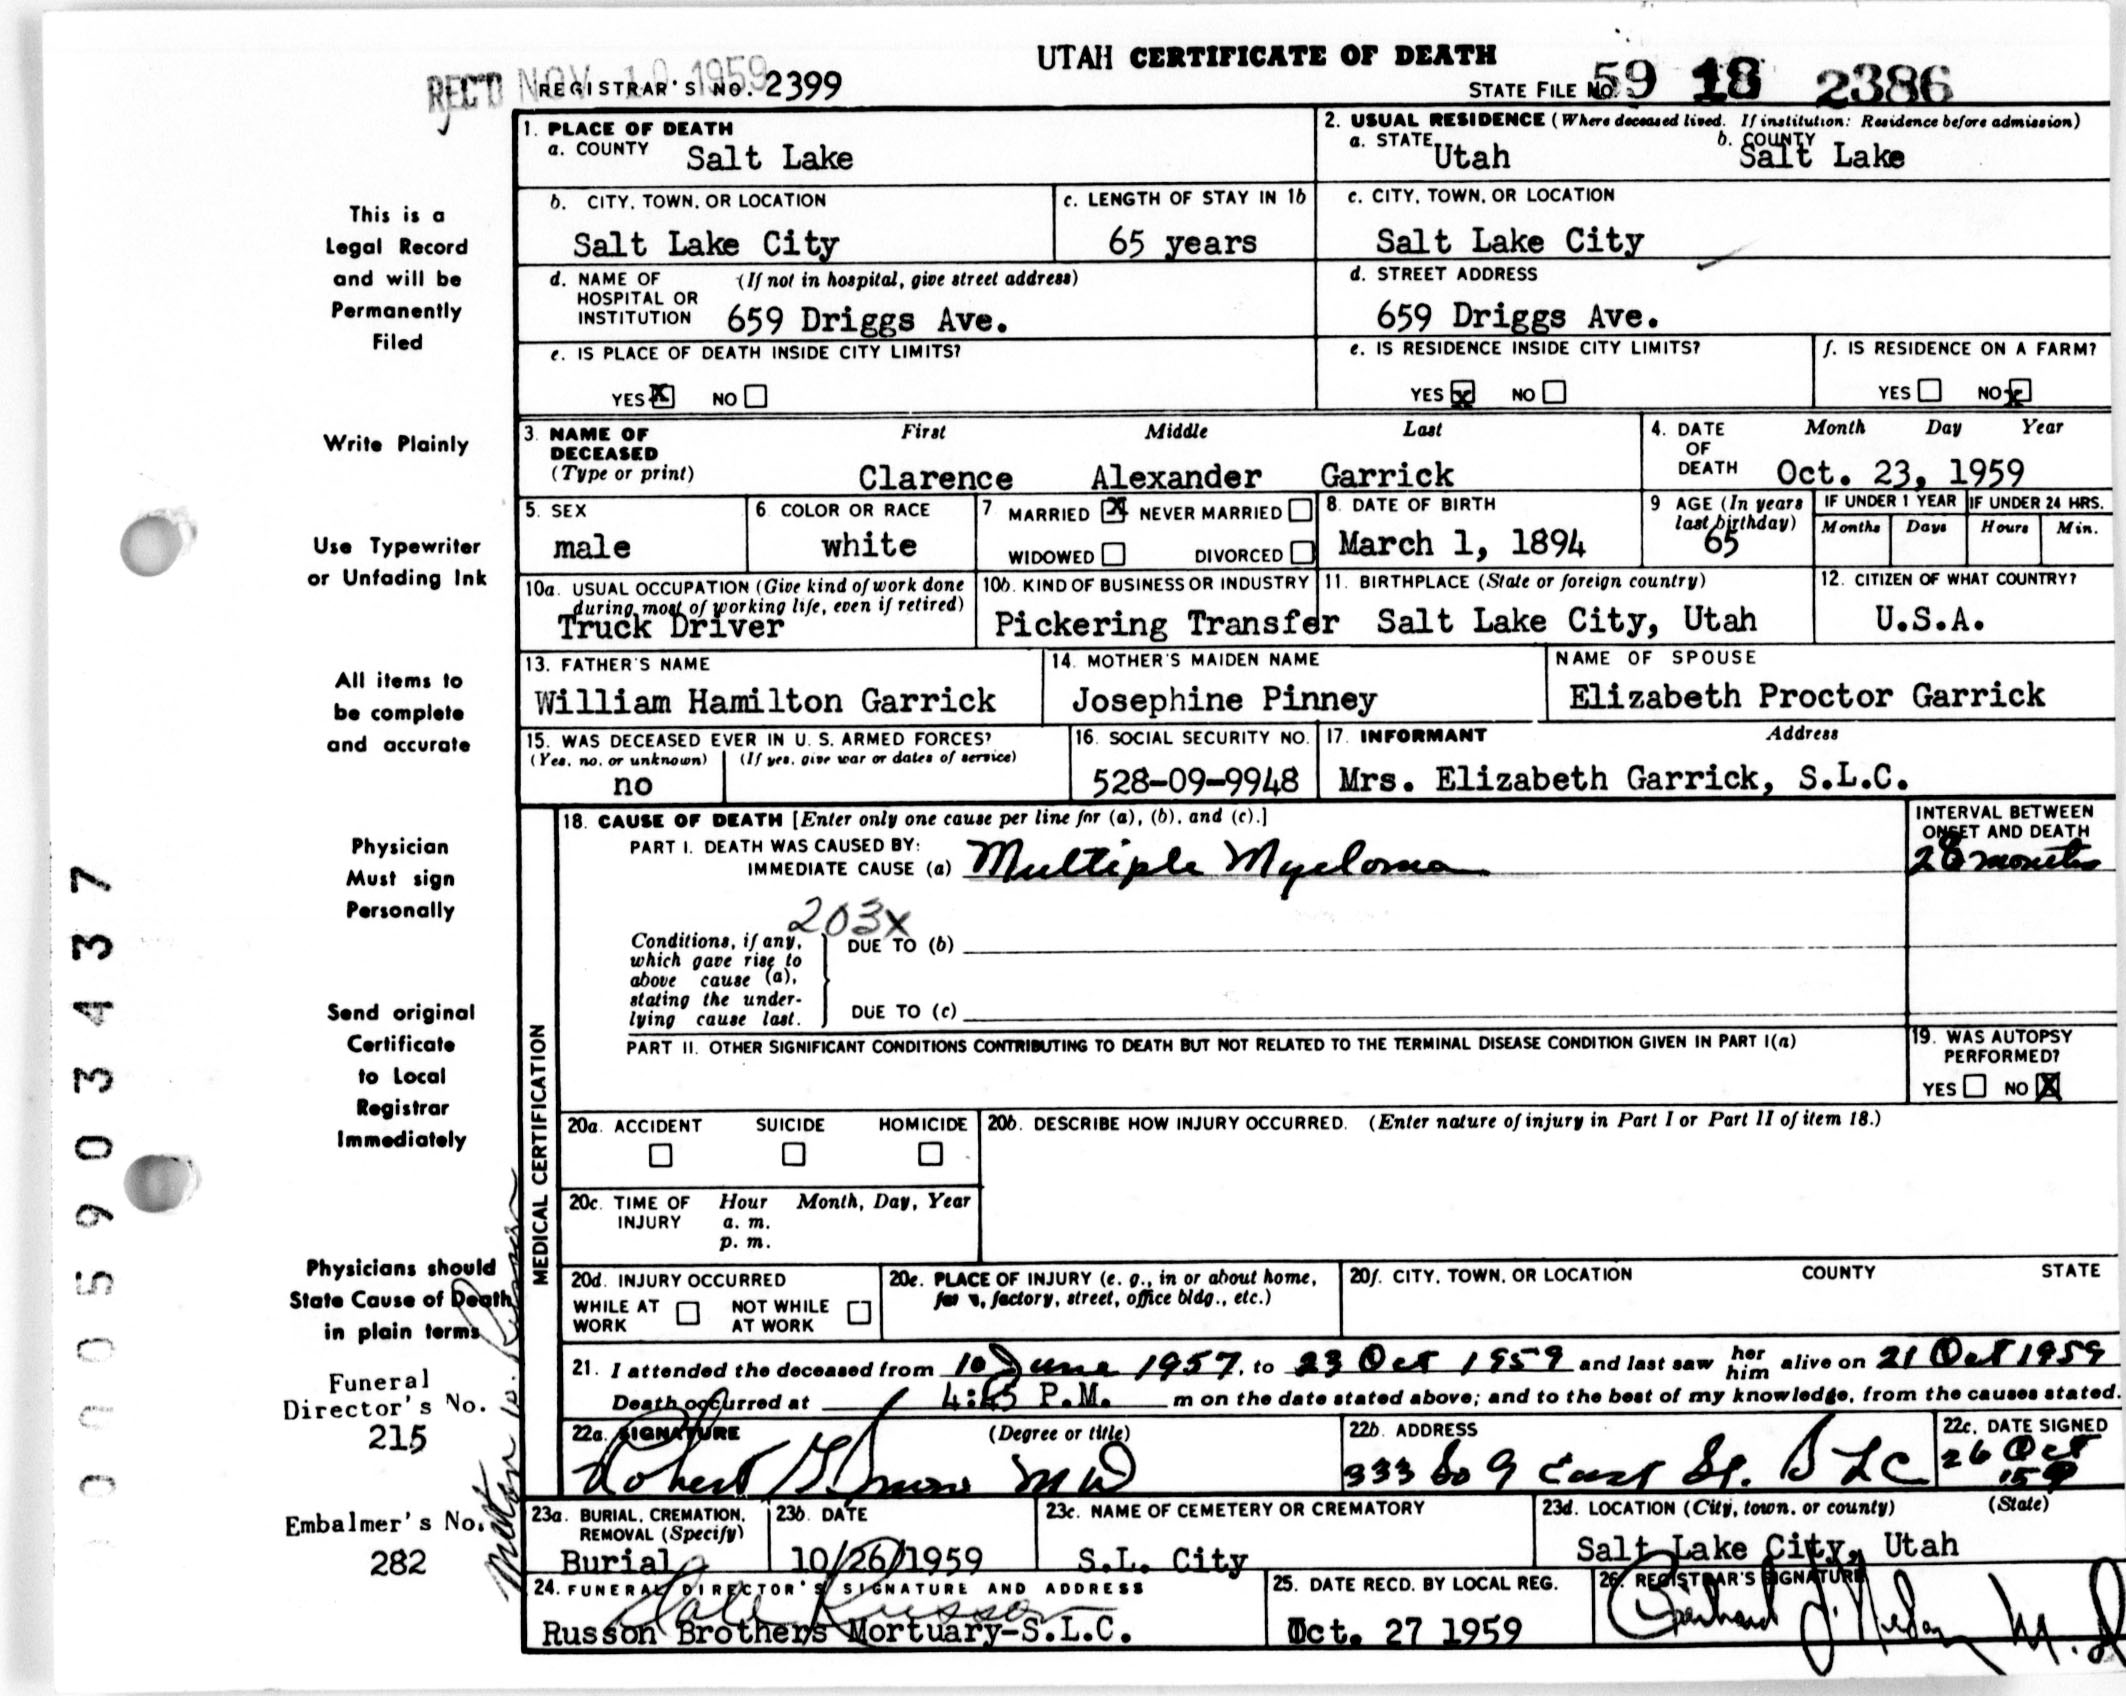 UTAH CERTIFICATE OF DEATH
REC'D NOV 10 1959
REGISTRAR'S NO. 2399
STATE FILE NO. 59 18 2386
1. PLACE OF DEATH
a. COUNTY Salt Lake
2. USUAL RESIDENCE (Where deceased lived. If institution: Residence before admission)
a. STATE Utah b. COUNTY Salt Lake
b. CITY, TOWN, OR LOCATION
Salt Lake City
c. LENGTH OF STAY IN 1b
65 years
c. CITY, TOWN, OR LOCATION
Salt Lake City
d. NAME OF HOSPITAL OR INSTITUTION (If not in hospital, give street address)
659 Driggs Ave.
d. STREET ADDRESS
659 Driggs Ave.
e. IS PLACE OF DEATH INSIDE CITY LIMITS?
YES X NO
e. IS RESIDENCE INSIDE CITY LIMITS?
YES X NO
f. IS RESIDENCE ON A FARM?
YES NO X
3. NAME OF DECEASED (Type or print)
First Middle Last
Clarence Alexander Garrick
4. DATE OF DEATH Month Day Year
Oct. 23, 1959
5. SEX
male
6. COLOR OR RACE
white
7 MARRIED X NEVER MARRIED
WIDOWED DIVORCED
8. DATE OF BIRTH
March 1, 1894
9 AGE (In years last birthday)
65
IF UNDER 1 YEAR
Months Days
IF UNDER 24 HRS.
Hours Min.
10a. USUAL OCCUPATION (Give kind of work done during most of working life, even if retired)
Truck Driver
10b. KIND OF BUSINESS OR INDUSTRY
Pickering Transfer
11. BIRTHPLACE (State or foreign country)
Salt Lake City, Utah
12. CITIZEN OF WHAT COUNTRY?
U.S.A.
13. FATHER'S NAME
William Hamilton Garrick
14. MOTHER'S MAIDEN NAME
Josephine Pinney
NAME OF SPOUSE
Elizabeth Proctor Garrick
15. WAS DECEASED EVER IN U. S. ARMED FORCES?
(Yes, no, or unknown) (If yes, give war or dates of service)
no
16. SOCIAL SECURITY NO.
528-09-9948
17. INFORMANT Address
Mrs. Elizabeth Garrick, S.L.C.
MEDICAL CERTIFICATION
18. CAUSE OF DEATH [Enter only one cause per line for (a), (b), and (c).]
PART I. DEATH WAS CAUSED BY:
IMMEDIATE CAUSE (a) Multiple Myeloma
INTERVAL BETWEEN ONSET AND DEATH
28 months
203X
Conditions, if any, which gave rise to above cause (a), stating the underlying cause last.
DUE TO (b)
DUE TO (c)
PART II. OTHER SIGNIFICANT CONDITIONS CONTRIBUTING TO DEATH BUT NOT RELATED TO THE TERMINAL DISEASE CONDITION GIVEN IN PART I(a)
19. WAS AUTOPSY PERFORMED?
YES NO X
20a. ACCIDENT SUICIDE HOMICIDE
20b. DESCRIBE HOW INJURY OCCURRED. (Enter nature of injury in Part I or Part II of item 18.)
20c. TIME OF INJURY Hour Month, Day, Year
a. m.
p. m.
20d. INJURY OCCURRED
WHILE AT WORK NOT WHILE AT WORK
20e. PLACE OF INJURY (e. g., in or about home, farm, factory, street, office bldg., etc.)
20f. CITY, TOWN, OR LOCATION COUNTY STATE
21. I attended the deceased from 10 June 1957, to 23 Oct 1959 and last saw her him alive on 21 Oct 1959
Death occurred at 4:45 P.M. m on the date stated above; and to the best of my knowledge, from the causes stated.
22a. SIGNATURE (Degree or title)
Robert G Snow MD
22b. ADDRESS
333 So 9 East St. SLC
22c. DATE SIGNED
26 Oct 59
23a. BURIAL, CREMATION, REMOVAL (Specify)
Burial
23b. DATE
10/26/1959
23c. NAME OF CEMETERY OR CREMATORY
S.L. City
23d. LOCATION (City, town, or county) (State)
Salt Lake City, Utah
24. FUNERAL DIRECTOR'S SIGNATURE AND ADDRESS
Dale Russon
Russon Brothers Mortuary-S.L.C.
25. DATE RECD. BY LOCAL REG.
Oct. 27 1959
26. REGISTRAR'S SIGNATURE
M.D.
This is a
Legal Record
and will be
Permanently
Filed
Write Plainly
Use Typewriter
or Unfading Ink
All items to
be complete
and accurate
Physician
Must sign
Personally
Send original
Certificate
to Local
Registrar
Immediately
Physicians should
State Cause of Death
in plain terms
Funeral
Director's No.
215
Embalmer's No.
282
Milton W. Russon
0005903437